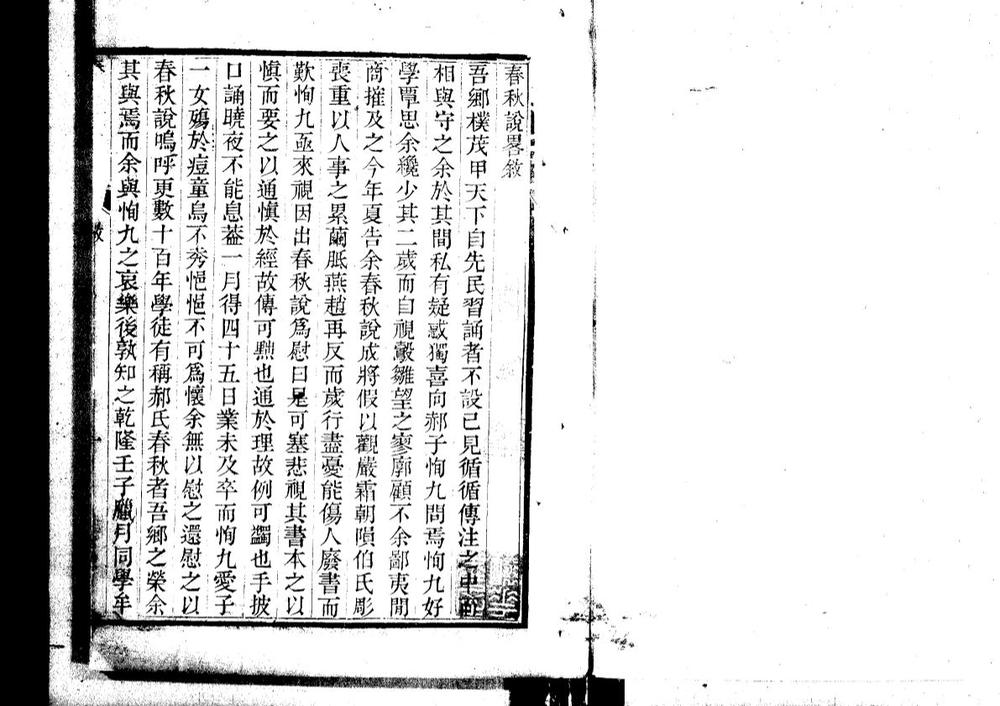 春秋說畧敘
吾鄉樸茂甲天下自先民習誦者不設己見循循傳注之中
相與守之余於其間私有疑惑獨喜向郝子恂九問焉恂九好
學覃思余纔少其二歲而自視鷇雛望之寥廓顧不余鄙夷閒
商搉及之今年夏告余春秋說成將假以觀嚴霜朝隕伯氏彫
喪重以人事之累繭胝燕趙再反而歲行盡憂能傷人廢書而
歎恂九亟來視因出春秋說爲慰曰是可塞悲視其書本之以
愼而要之以通愼於經故傳可㸃也通於理故例可蠲也手披
口誦曉夜不能息葢一月得四十五日業未及卒而恂九愛子
一女殤於痘童烏不秀悒悒不可爲懷余無以慰之還慰之以
春秋說嗚呼更數十百年學徒有稱郝氏春秋者吾鄉之榮余
其與焉而余與恂九之哀樂後孰知之乾隆壬子臘月同學牟
敘